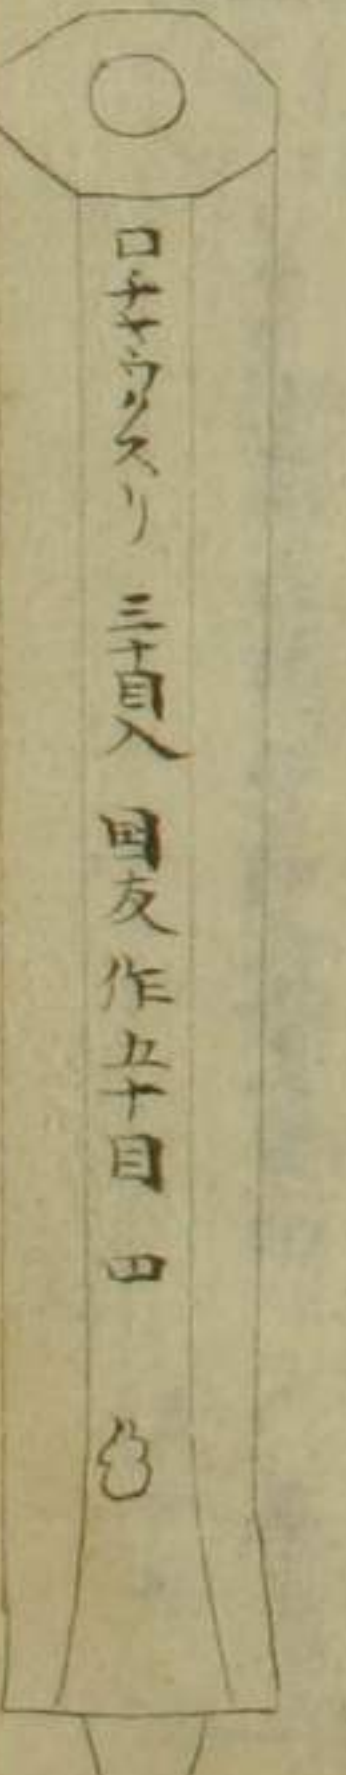 口チヤウクスリ 三十目入 国友作五十目 四